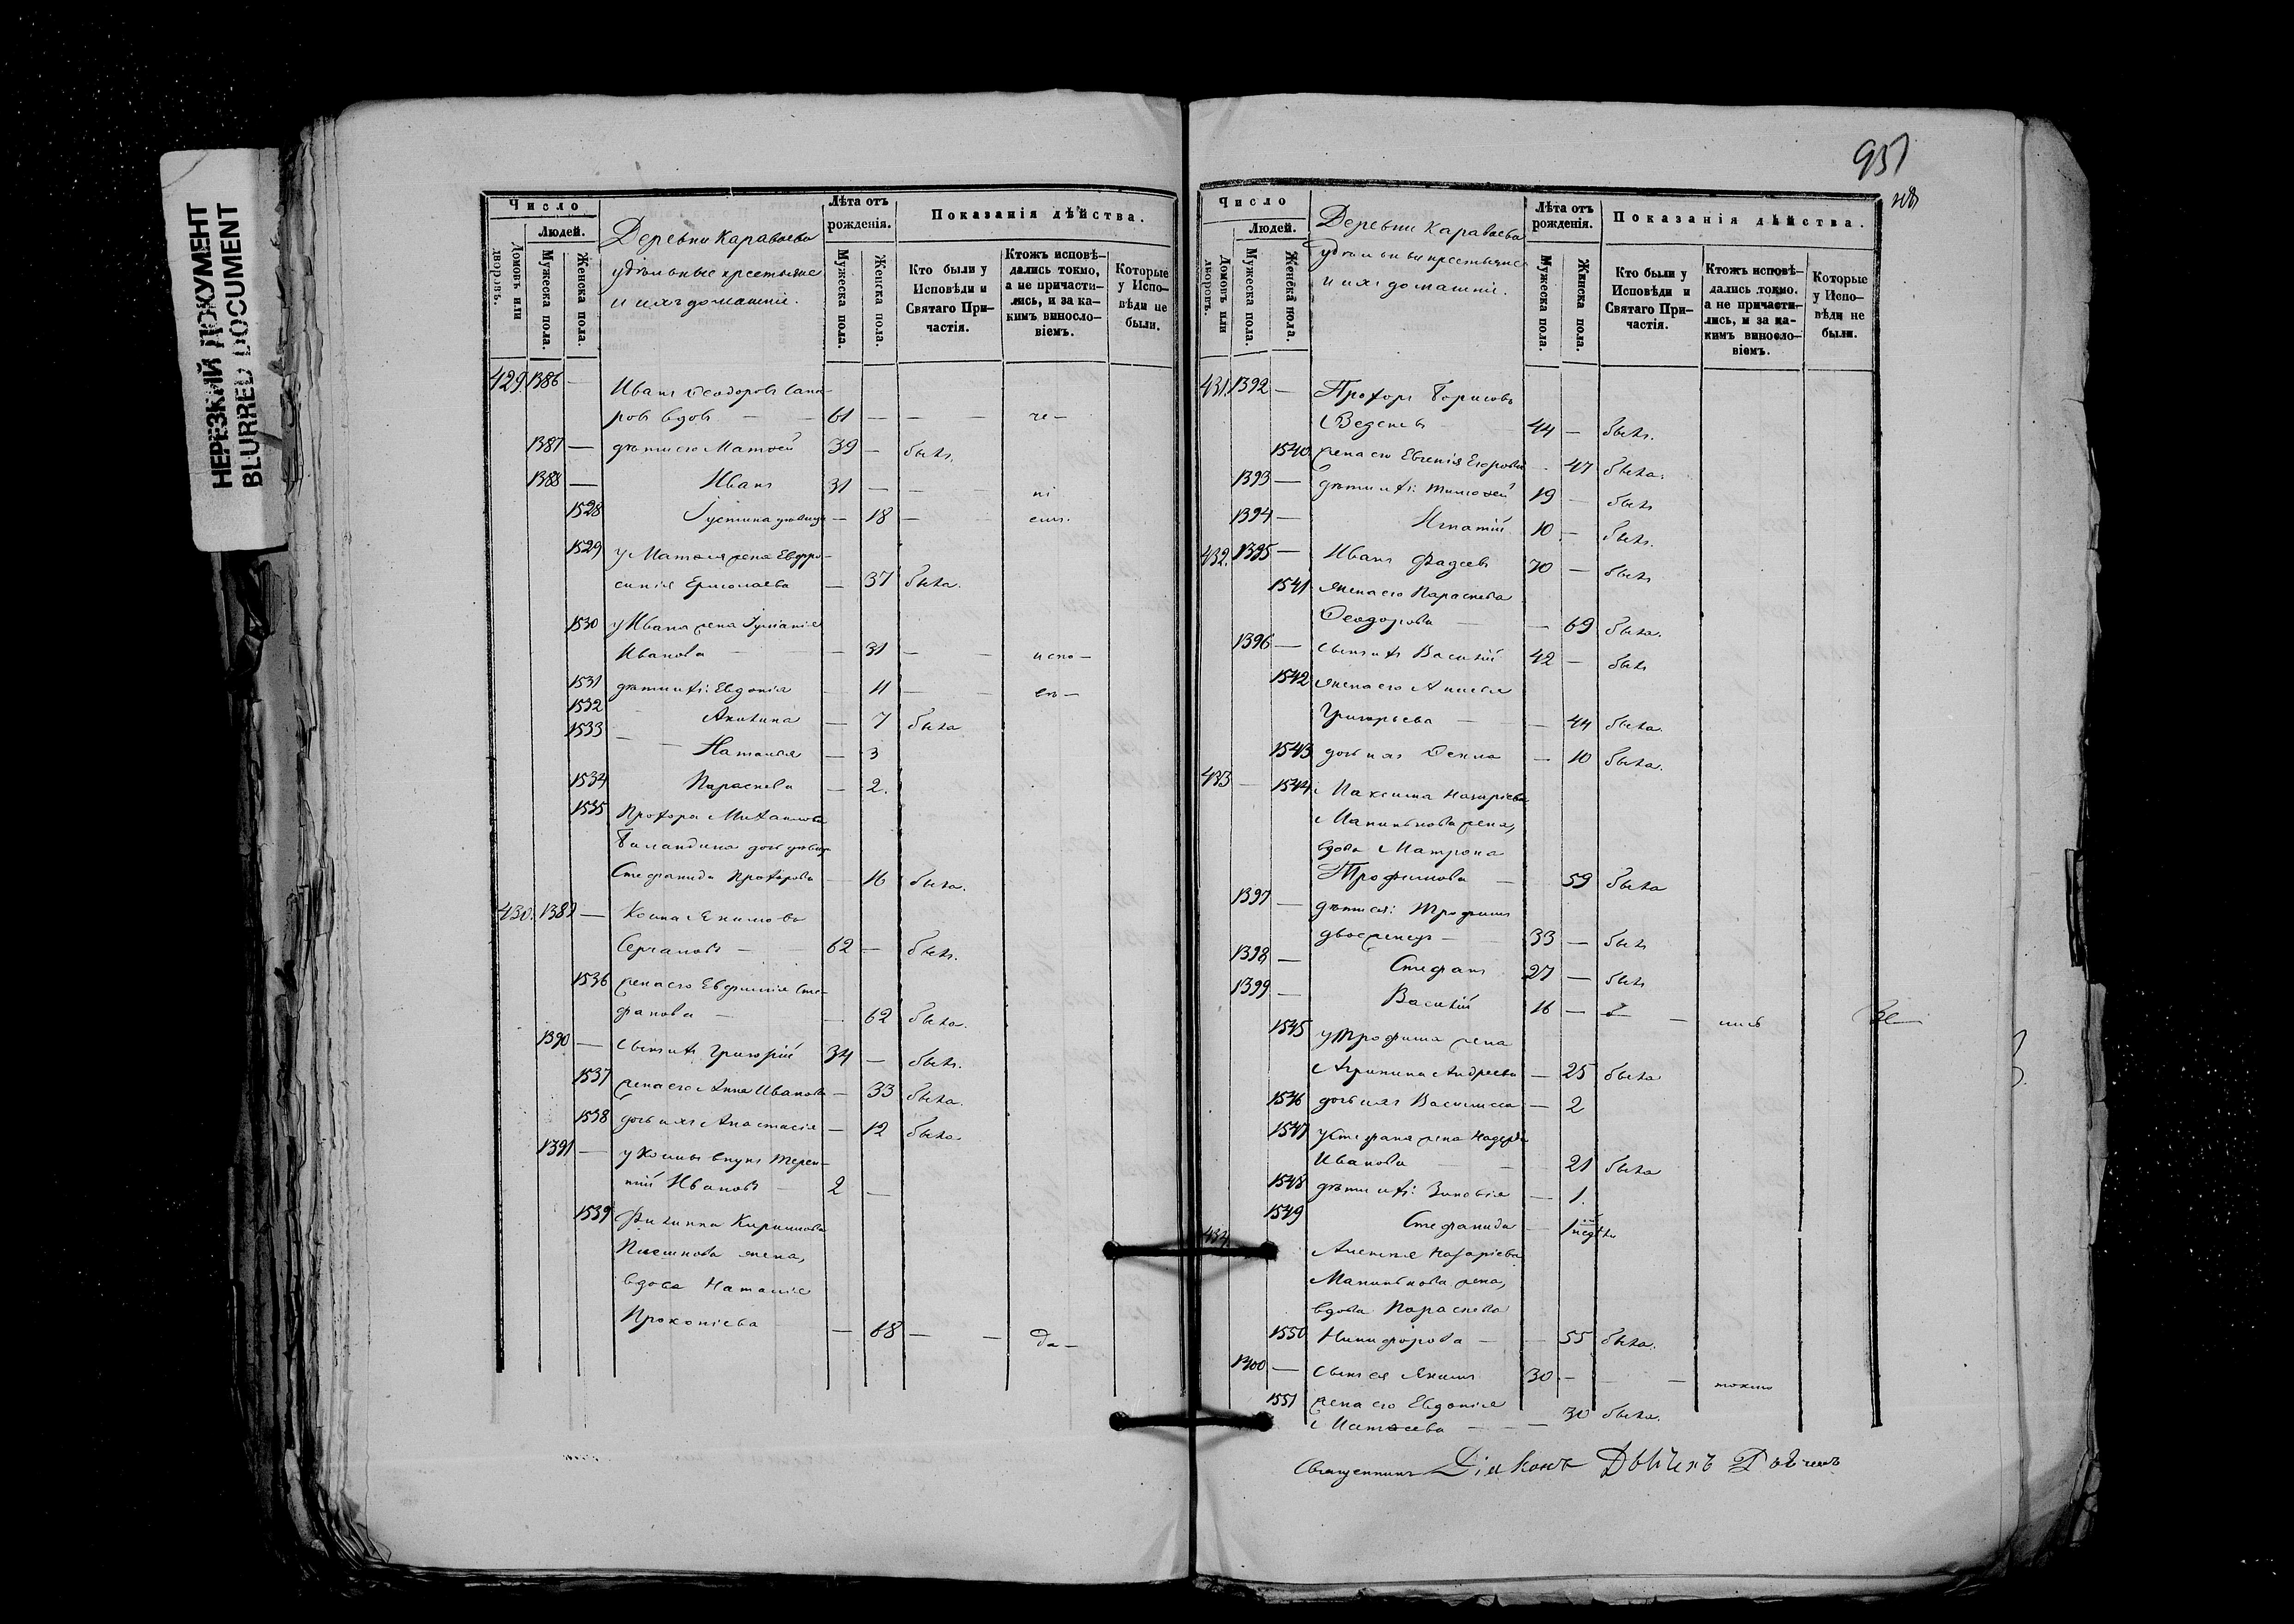 НЕРЕЗКИЙ ДОКУМЕНТ
BLURRED DOCUMENT
Число
Людей.
Домовъ или дворовъ.
Мужеска пола.
Женска пола.
Деревни Караваева
удѣльные крестьяне
и ихъ домашніе.
Лѣта отъ рожденія.
Мужеска пола.
Женска пола.
Показанія дѣйства.
Кто были у Исповѣди и Святаго Причастія.
Ктожъ исповѣдались токмо, а не причастились, и за какимъ винословіемъ.
Которые у Исповѣди не были.
429. 1386 — Иванъ Ѳеодоровъ
ровъ вдовъ — 61 — — — че —
1387 — дѣти его Матѳей 39 — былъ.
1388 — Иванъ 31 — — — ні
1528 Іустина дѣвица — 18 — —
1529 у Матѳея жена Евфро-
синія Ермолаева — 37 была.
1530 у Ивана жена
Иванова — 31 — — испо —
1531 дѣти ихъ: Евдокія — 11 — —
1532 Акилина — 7 была
1533 Наталья — 3
1534 Параскева — 2.
1535 Прохора Михайлова
Баландина дочь дѣвица
Стефанида Прохорова — 16 была.
430. 1389 — Косма Якимовъ
— 62 — былъ.
1536 жена его Евфимія Сте-
фанова — — 62 была.
1390 — сынъ ихъ Григорій 34 — былъ.
1537 жена его Анна Иванова — 33 была.
1538 дочь ихъ Анастасія — 12 была
1391 — у Космы внукъ Терен-
тій Ивановъ — 2 —
1539 Филиппа
жена,
вдова Наталія
Прокопіева — — 68 — — да —
951
Число
Людей.
Домовъ или дворовъ.
Мужеска пола.
Женска пола.
Деревни Караваева
удѣльные крестьяне
и ихъ домашніе.
Лѣта отъ рожденія.
Мужеска пола.
Женска пола.
Показанія дѣйства.
Кто были у Исповѣди и Святаго Причастія.
Ктожъ исповѣдались токмо, а не причастились, и за какимъ винословіемъ.
Которые у Исповѣди не были.
431. 1392 — Прохоръ Борисовъ
44 — былъ.
1540 жена его Евгенія Егорова — 47 была.
1393 — дѣти ихъ: Тимоѳей 19 — былъ
1394 — Игнатій 10 — былъ.
432. 1395 — Иванъ Фадеевъ 70 — былъ
1541 жена его Параскева
Ѳеодорова — — 69 была.
1396 — сынъ ихъ Василій 42 — былъ
1542 жена его Анисія
Григорьева — — 44 была.
1543 дочь ихъ Ѳекла — 10 была.
433 — 1544 Максима Назаріева
Манинкова жена,
вдова Матрона
Трофимова — 59 была
1397 — дѣти ея: Трофимъ
двоеженецъ — 33 — былъ
1398 — Стефанъ 27 — былъ
1399 — Василій 16 — —
1545 у Трофима жена
Агрипина Андреева — 25 была
1546 дочь ихъ Василисса — 2
1547 у Стефана жена
Иванова — 21 была
1548 дѣти ихъ: Зиновія — 1.
1549 Стефанида — 1
434. Алексѣя Назаріева
Манинкова жена,
вдова Параскева
1550 Никифорова — — 55 была.
1400 — сынъ ея Якимъ 30 — — токмо
1551 жена его Евдокія
Матѳеева — — 30 была.
Священникъ Діаконъ